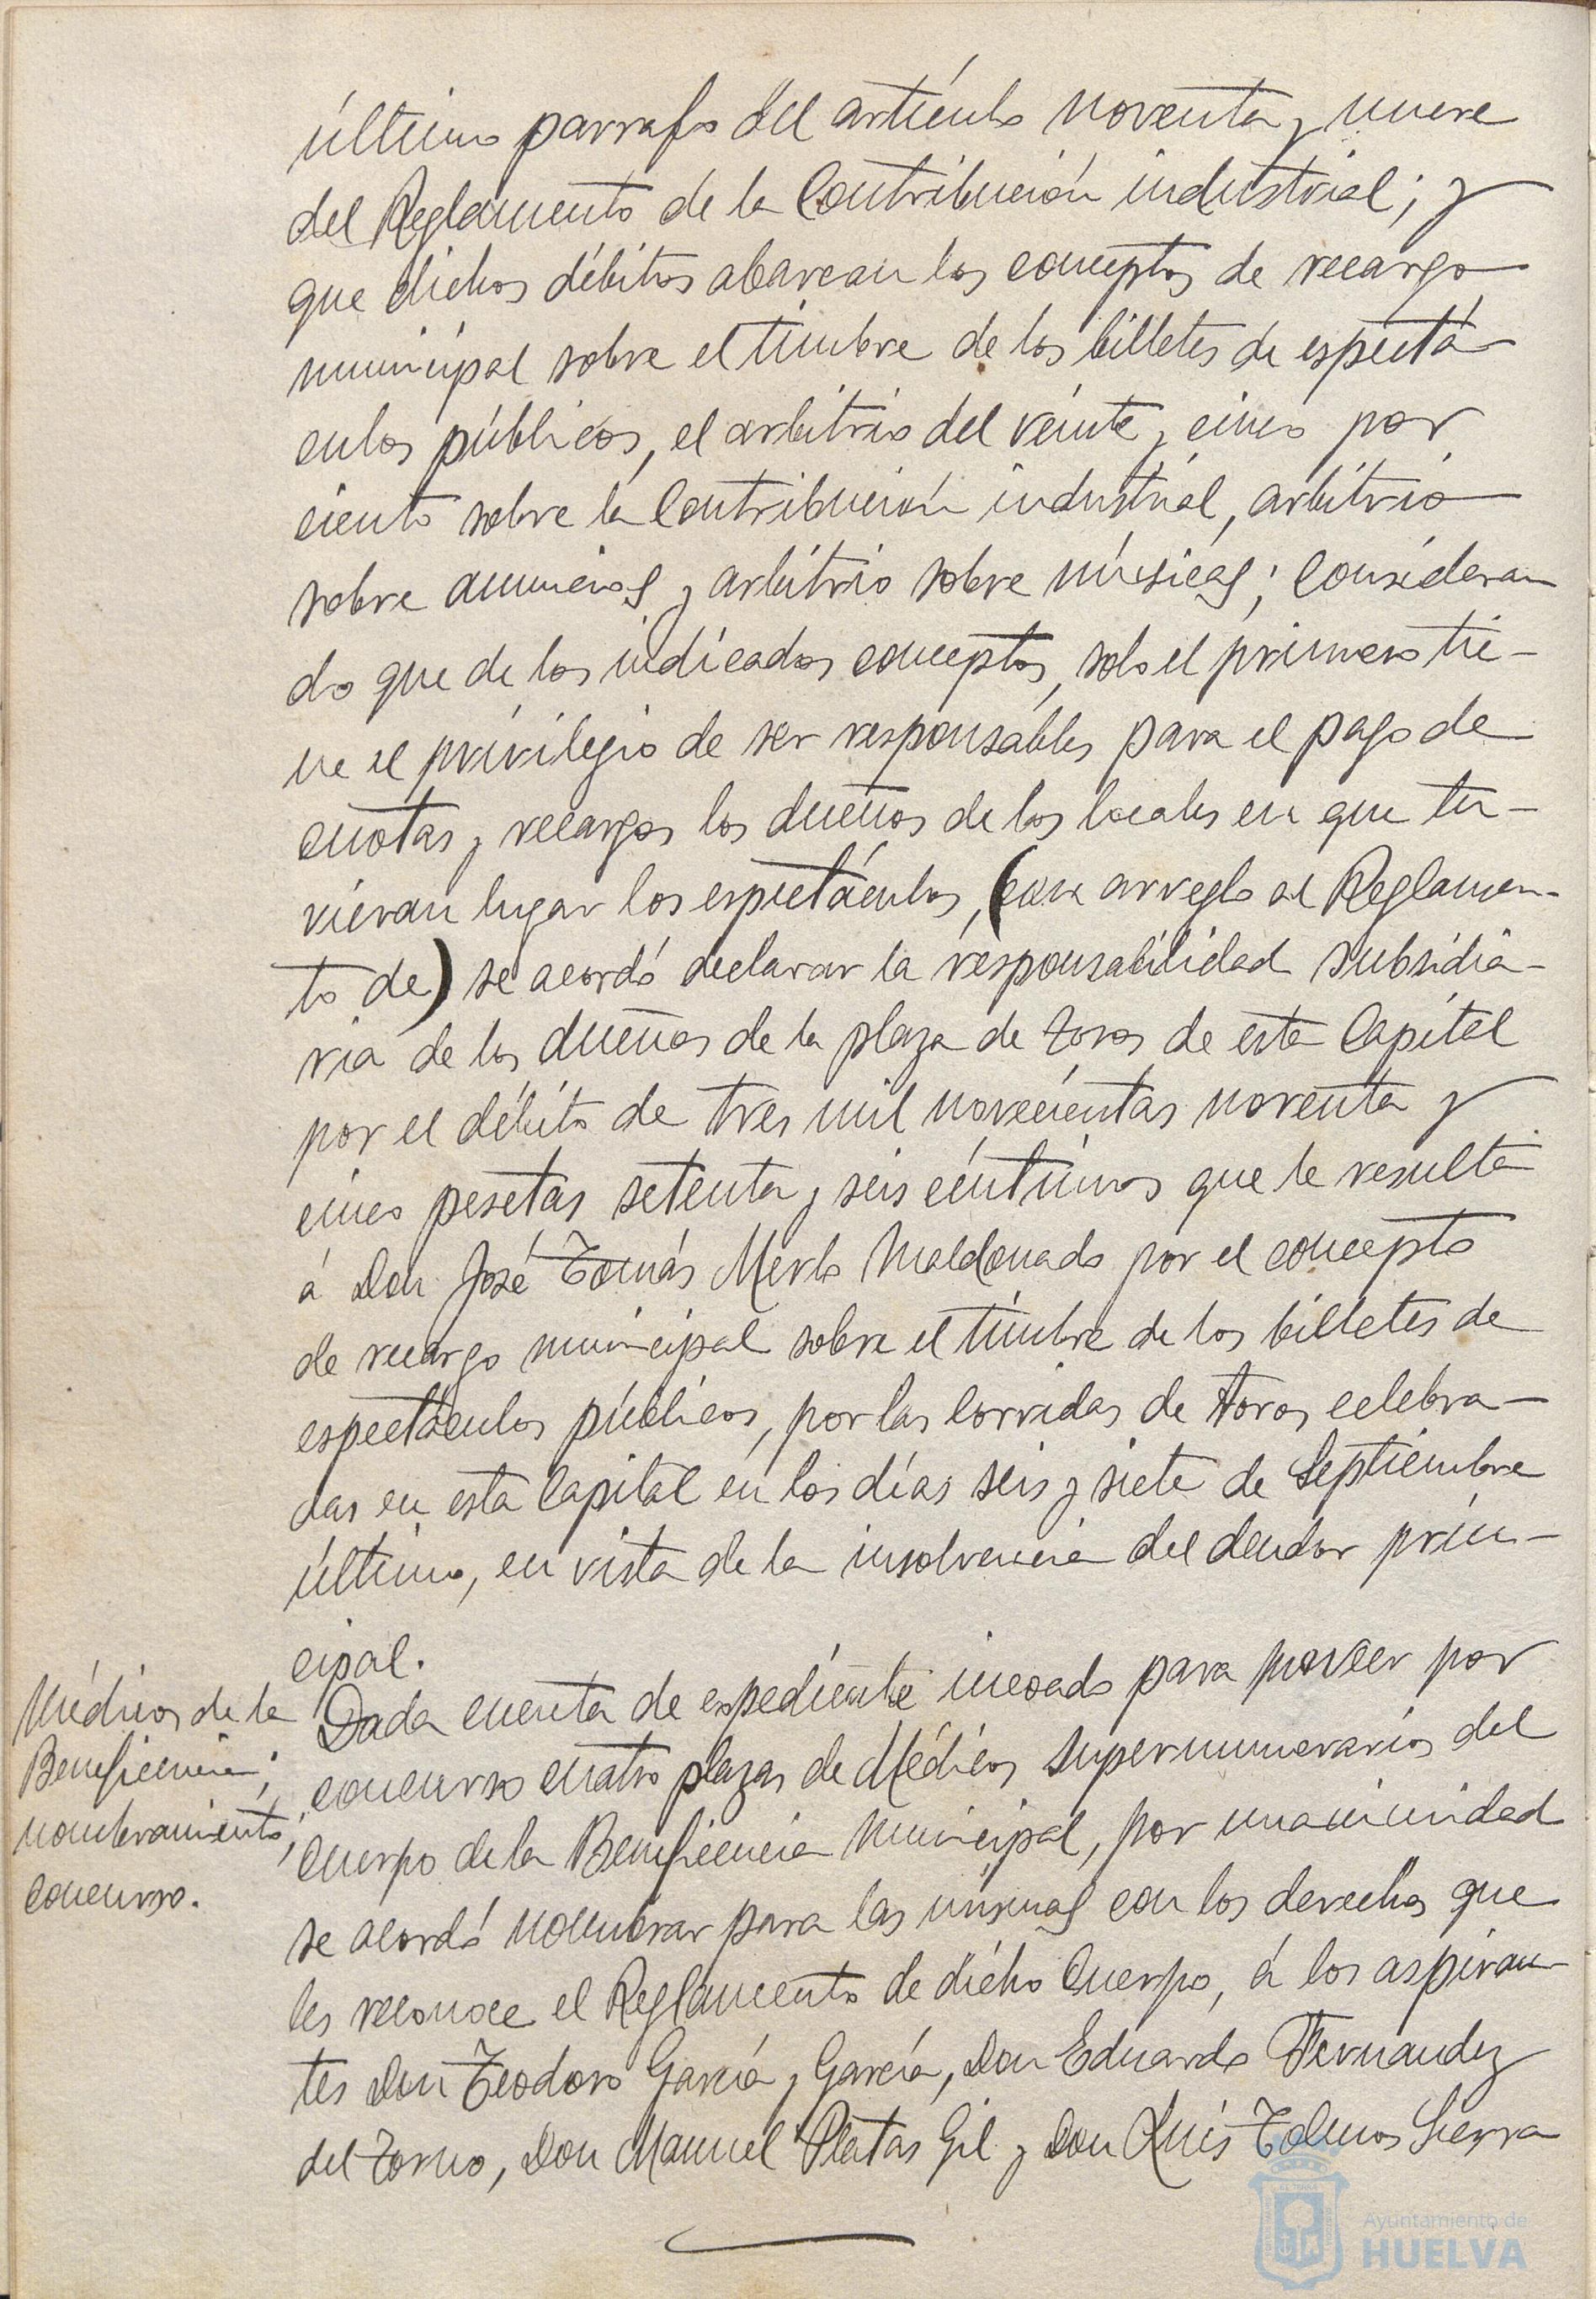 último parrafo del artículo noventa y nueve
del Reglamento de la Contribución industrial; y
que dichos débitos abarcan los conceptos de recargo
municipal sobre el timbre de los billetes de espectá-
culos públicos, el arbitrio del veinte y cinco por
ciento sobre la Contribución industrial, arbitrio
sobre anuncios y arbitrio sobre músicas; Consideran
do que de los indicados conceptos, solo el primero tie-
ne el privilegio de ser responsables para el pago de
cuotas y recargos los dueños de los locales en que tu-
vieran lugar los espectáculos, (con arreglo al Reglamen-
to de) se acordó declarar la responsabilidad subsidia-
ria de los dueños de la plaza de toros de esta Capital
por el débito de tres mil novecientas noventa y
cinco pesetas setenta y seis céntimos que le resulta
á Don José Tomás Merlo Maldonado por el concepto
de recargo municipal sobre el timbre de los billetes de
espectáculos públicos, por las Corridas de toros celebra-
das en esta Capital en los días seis y siete de Septiembre
último, en vista de la insolvencia del deudor prin-
cipal.
Médicos de la
Beneficencia;
nombramiento;
concurso.
Dada cuenta de expediente incoado para proveer por
concurso cuatro plazas de Médicos supernumerarios del
Cuerpo de la Beneficencia Municipal, por unanimidad
se acordó nombrar para las mismas con los derechos que
les reconoce el Reglamento de dicho Cuerpo, á los aspiran-
tes Don Teodoro García y García, Don Eduardo Fernandez
del Torno, Don Manuel Platas Gil y Don Luis Tolmos Sierra
Ayuntamiento de
HUELVA